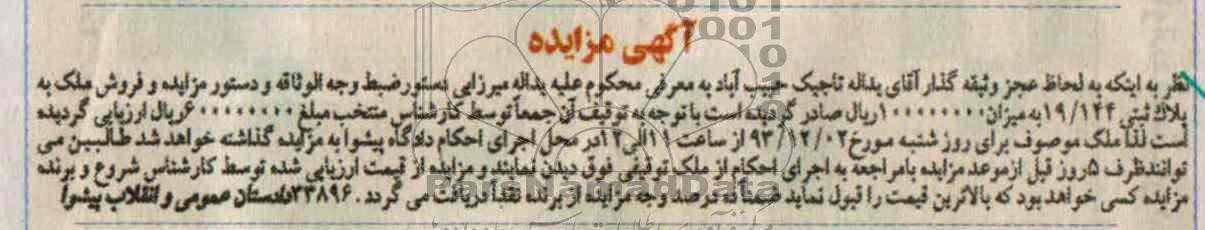 آگهی مزایده
نظر به اینکه به لحاظ عجز وثیقه گذار آقای یداله تاجیک حبیب آباد به معرفی محکوم علیه یداله میرزایی دستور ضبط وجه الوثاقه و دستور مزایده و فروش ملک به
پلاک ثبتی ۱۹/۱۴۴ به میزان ۱۰۰۰۰۰۰۰۰ ریال صادر گردیده است با توجه به توقیف آن جمعا توسط کارشناس منتخب مبلغ ۶۰۰۰۰۰۰۰۰ ریال ارزیابی گردیده
است لذا ملک موصوف برای روز شنبه مورخ ۹۳/۱۲/۰۲ از ساعت ۱۱ الی ۱۲ در محل اجرای احکام دادگاه پیشوا به مزایده گذاشته خواهد شد طالبین می
توانند ظرف ۵ روز قبل از موعد مزایده با مراجعه به اجرای احکام از ملک توقیفی فوق دیدن نمایند و مزایده از قیمت ارزیابی شده توسط کارشناس شروع و برنده
مزایده کسی خواهد بود که بالاترین قیمت را قبول نماید ضمنا ده درصد وجه مزایده از برنده نقدا دریافت می گردد. ۲۳۸۹۶ دادستان عمومی و انقلاب پیشوا
ParsNamadData